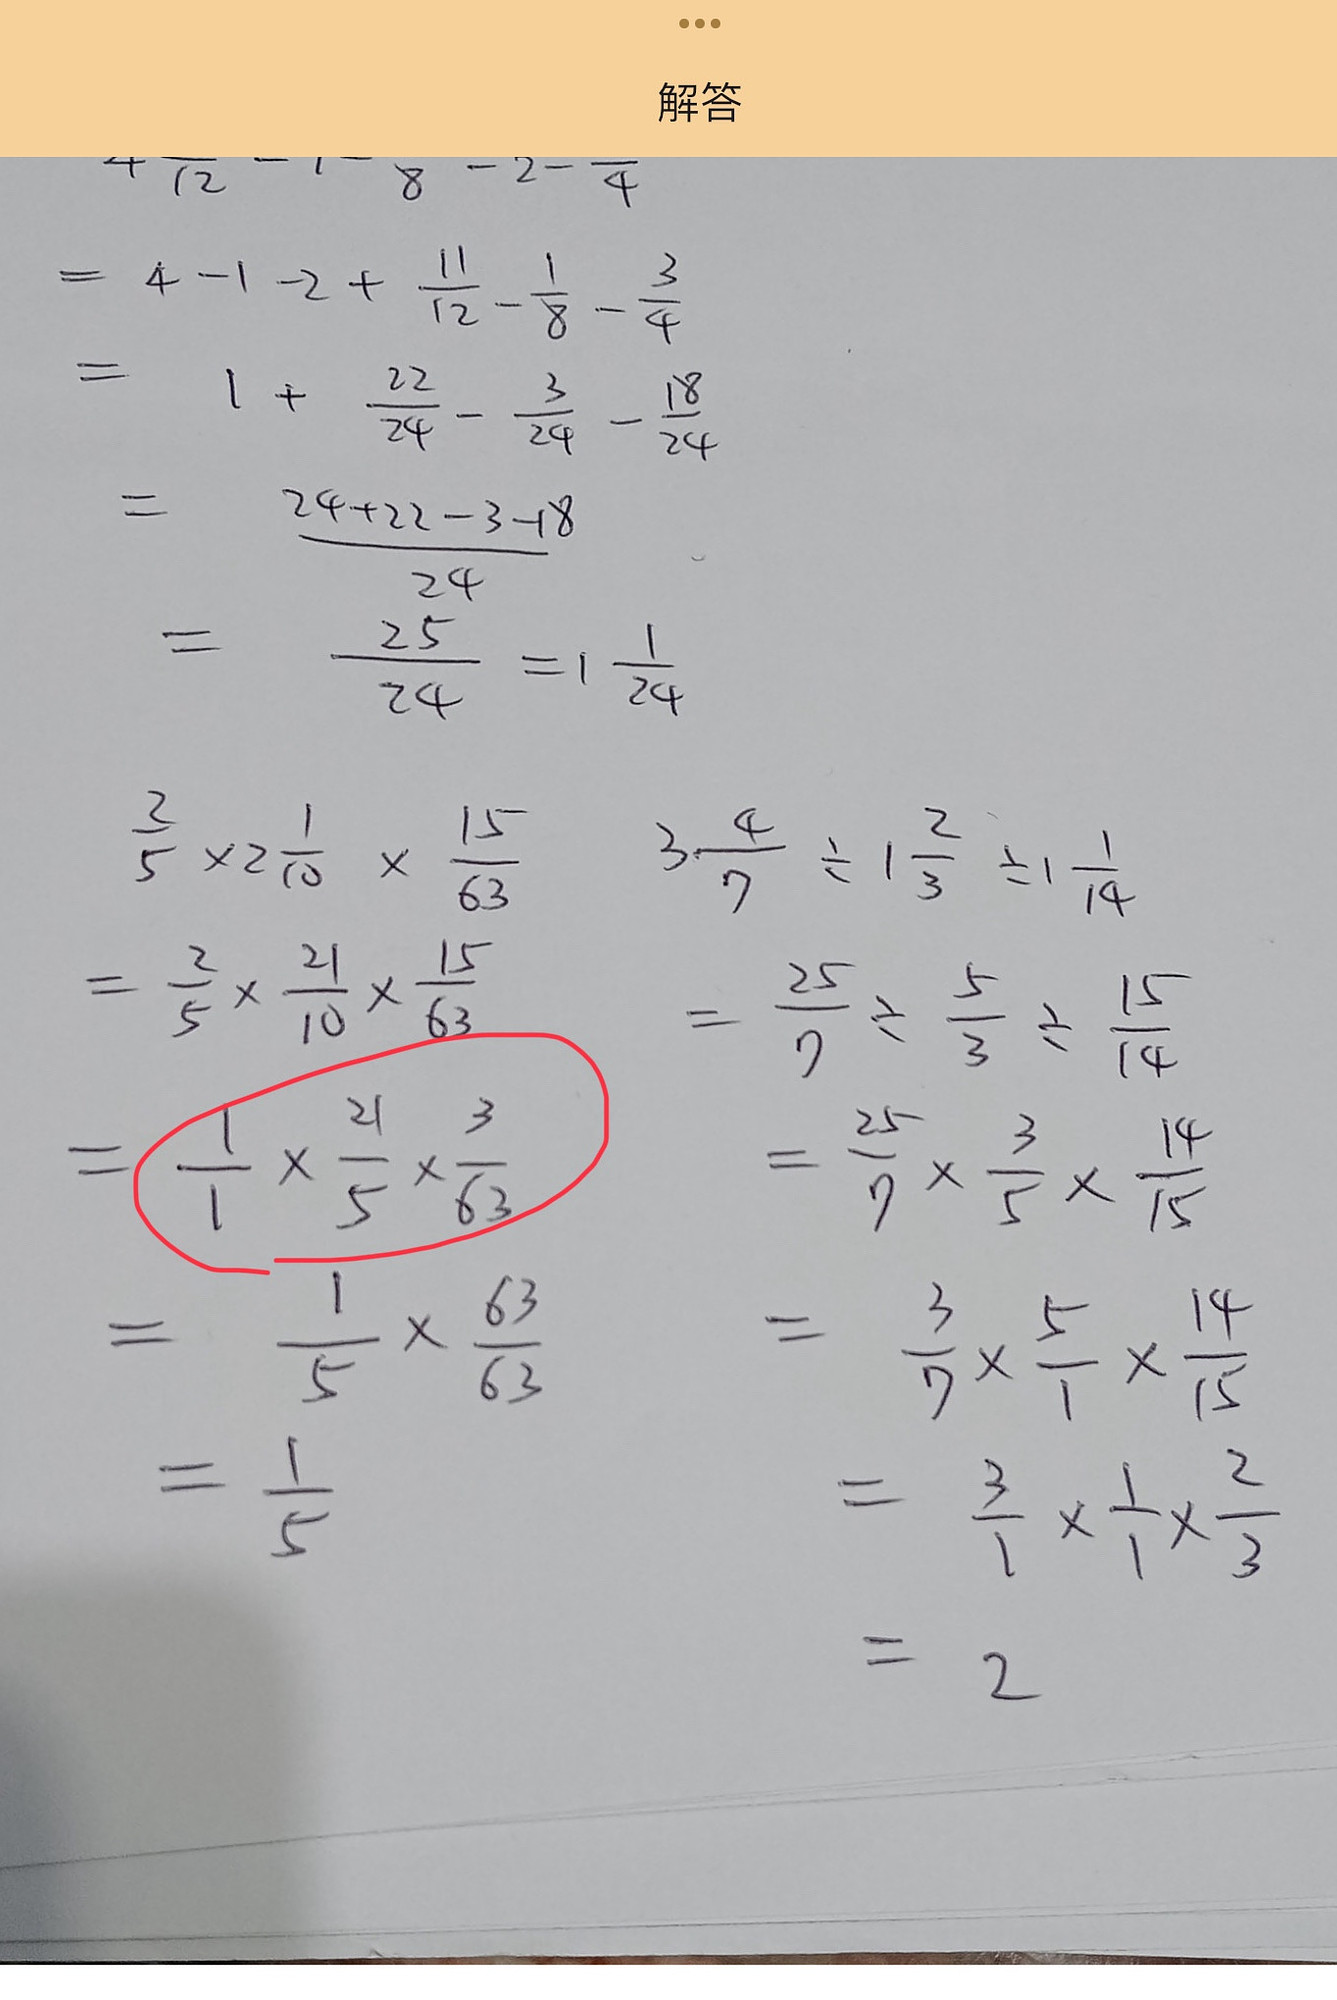 解答
4 /12 - 1 - /8 - 2 - /4
= 4 - 1 - 2 + 11/12 - 1/8 - 3/4
= 1 + 22/24 - 3/24 - 18/24
= 24+22-3-18/24
= 25/24 = 1 1/24
2/5 × 2 1/10 × 15/63
= 2/5 × 21/10 × 15/63
= 1/1 × 21/5 × 3/63
= 1/5 × 63/63
= 1/5
3 4/7 ÷ 1 2/3 ÷ 1 1/14
= 25/7 ÷ 5/3 ÷ 15/14
= 25/7 × 3/5 × 14/15
= 3/7 × 5/1 × 14/15
= 3/1 × 1/1 × 2/3
= 2